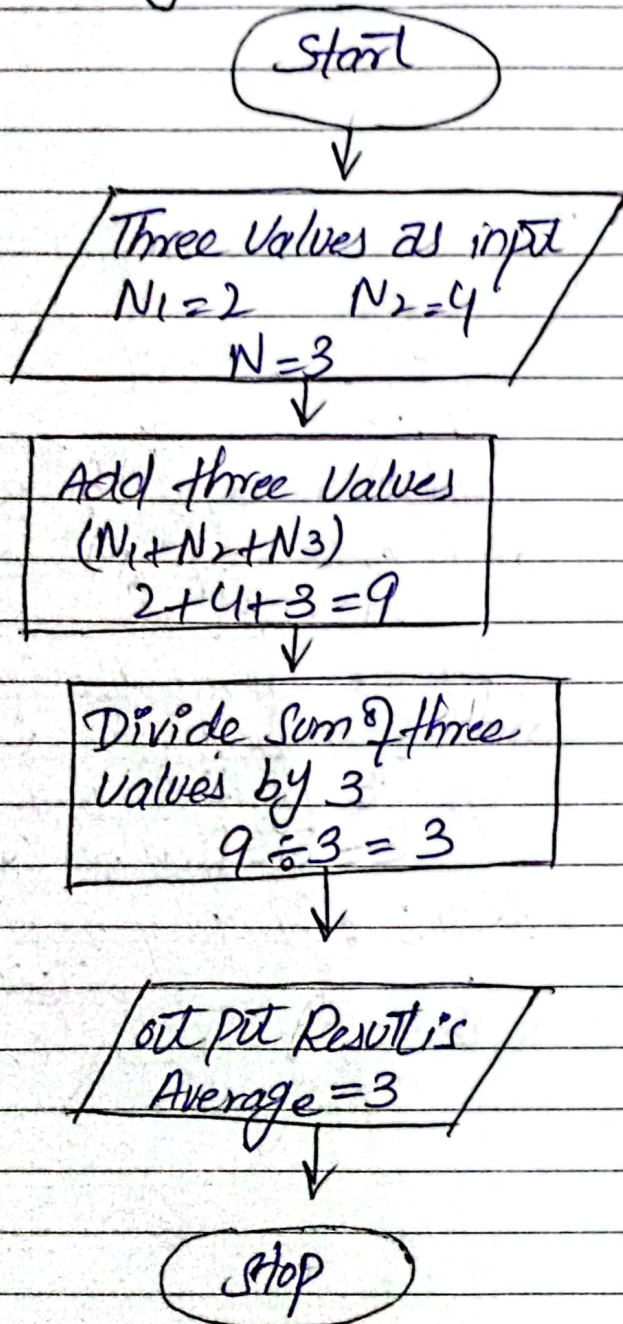 Start
Three Values as input
N1=2 N2=4
N=3
Add three Values
(N1+N2+N3)
2+4+3=9
Divide Sum of three
values by 3
9÷3=3
output Result is
Average=3
Stop